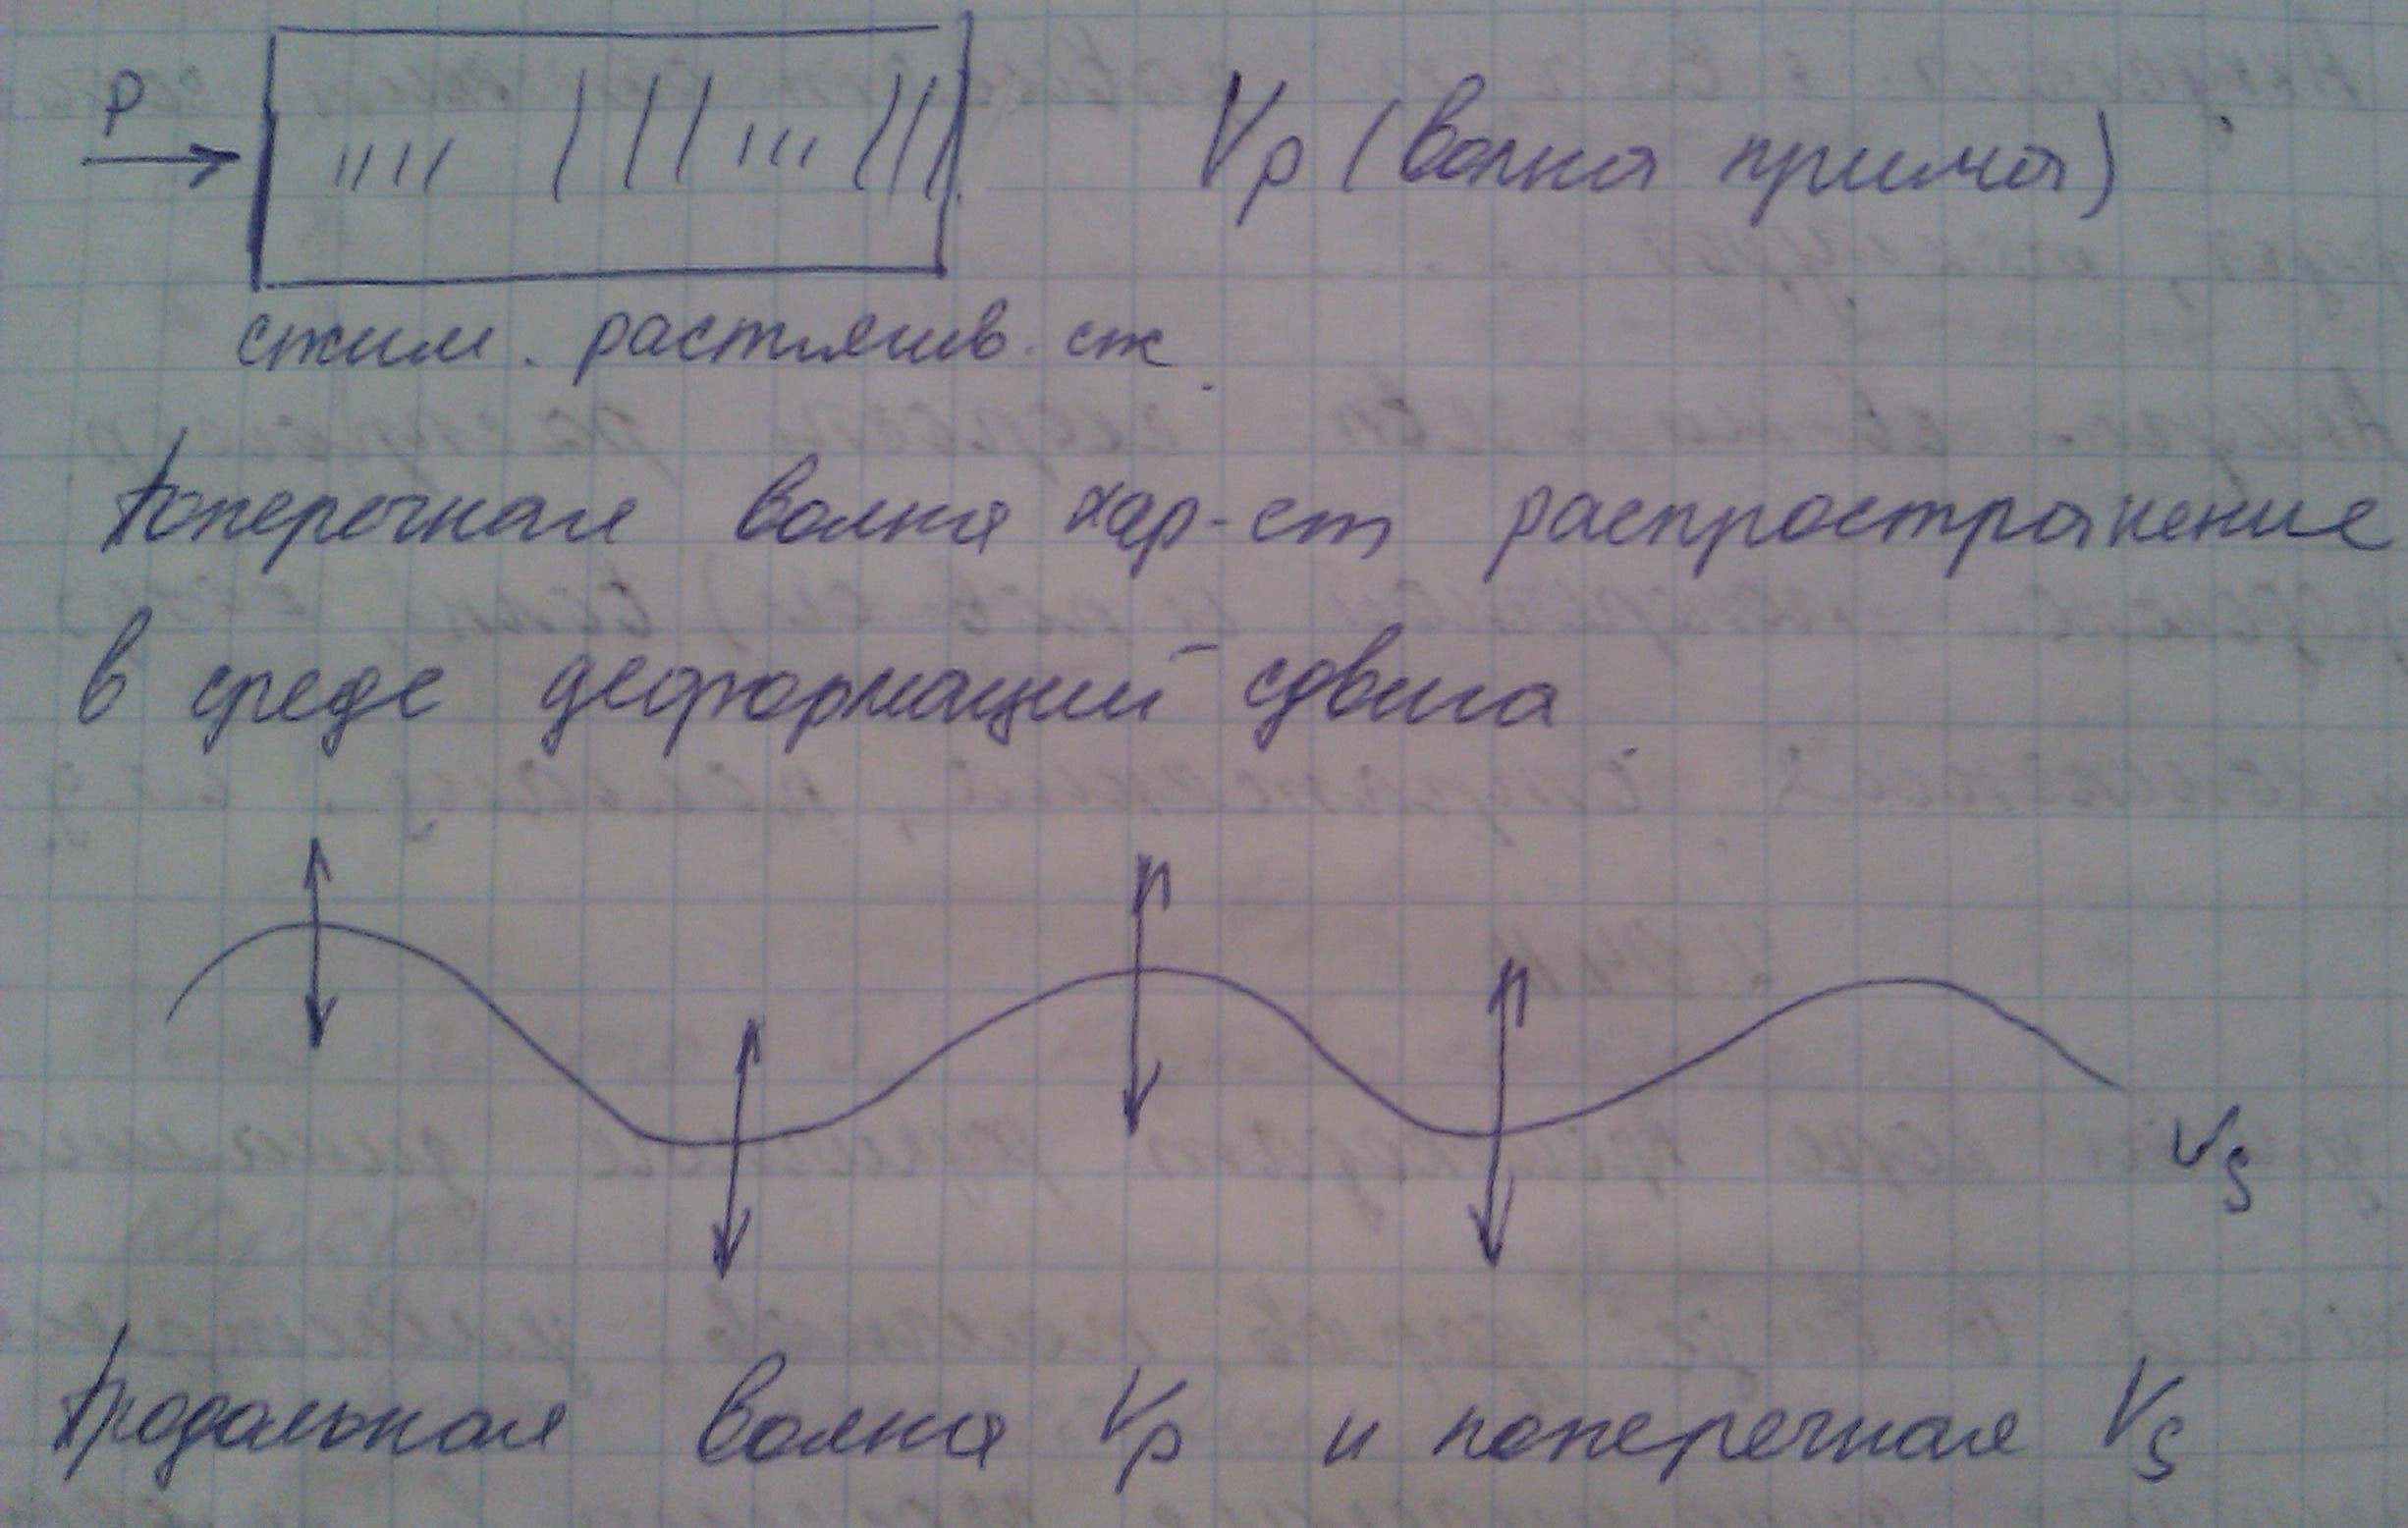 P
Vp (волна прима)
сжим. растягив. сж.
Поперечная волна хар-ет распространение
в среде деформаций сдвига.
Vs
Продольная волна Vp и поперечная Vs